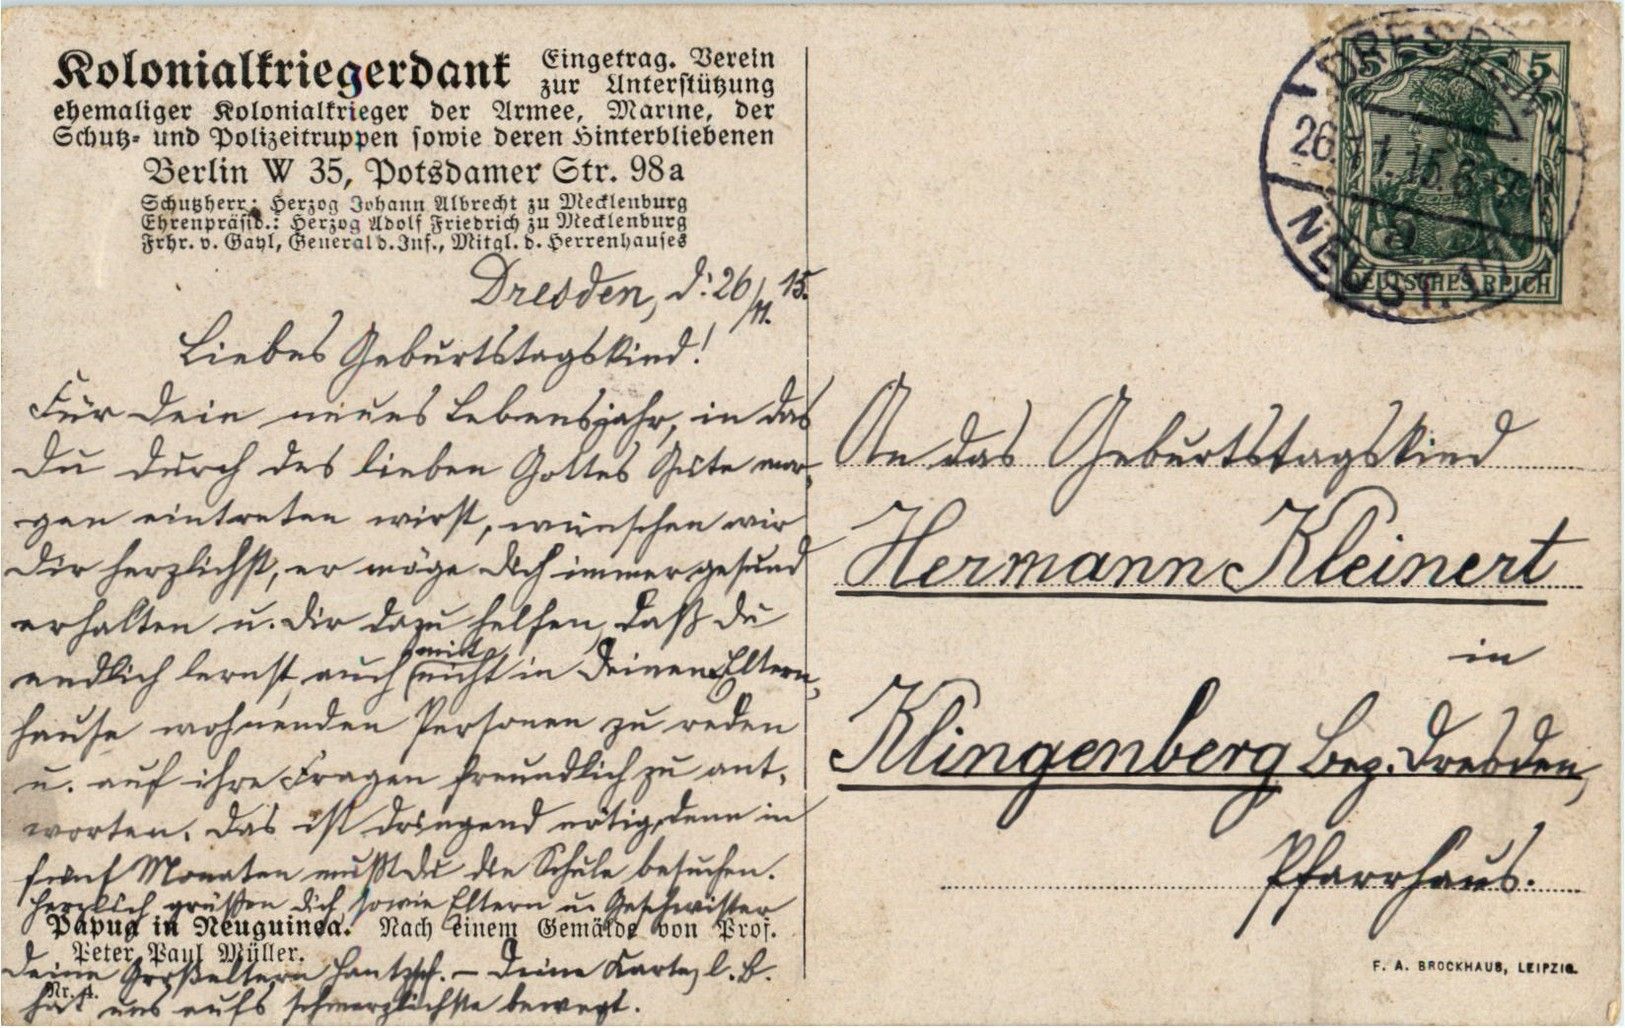 Kolonialkriegerdank Eingetrag. Verein
zur Unterstützung
ehemaliger Kolonialkrieger der Armee, Marine, der
Schutz- und Polizeitruppen sowie deren Hinterbliebenen
Berlin W 35, Potsdamer Str. 98a
Schutzherr: Herzog Johann Albrecht zu Mecklenburg
Ehrenpräsid.: Herzog Adolf Friedrich zu Mecklenburg
Frhr. v. Gayl, General d. Inf., Mitgl. d. Herrenhauses
Dresden, d. 26/11. 15.
Liebes Geburtstagskind!
Für Dein neues Lebensjahr, in das
Du durch des lieben Gottes Güte mor-
gen eintreten wirst, wünschen wir
Dir herzlichst, er möge Dich immer gesund
erhalten u. Dir dazu helfen, daß Du
endlich lernst, auch mit nicht in Deinem Eltern-
hause wohnenden Personen zu reden
u. auf ihre Fragen freundlich zu ant-
worten. Das ist dringend nötig, denn in
fünf Monaten mußt Du die Schule besuchen.
Herzlich grüßen Dich, sowie Eltern u. Geschwister
Papua in Neuguinea. Nach einem Gemälde von Prof.
Peter Paul Müller.
Deine Großeltern Hantzsch. – Deine Karte, l. B.
Nr. 4.
hat uns aufs schmerzlichste bewegt.
DRESDEN
26.11.15. 8-9
NEUST.
5 5
DEUTSCHES REICH
An das Geburtstagskind
Hermann Kleinert
in
Klingenberg Bez. Dresden,
Pfarrhaus.
F. A. BROCKHAUS, LEIPZIG.